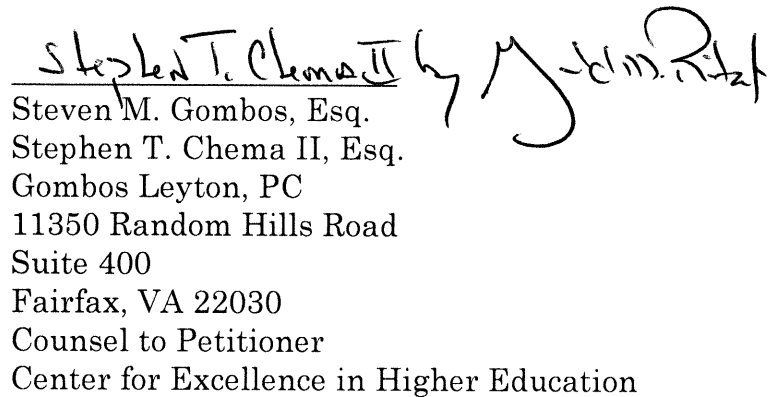 Stephen T. Chema II by M. Ritzert
Steven M. Gombos, Esq.
Stephen T. Chema II, Esq.
Gombos Leyton, PC
11350 Random Hills Road
Suite 400
Fairfax, VA 22030
Counsel to Petitioner
Center for Excellence in Higher Education